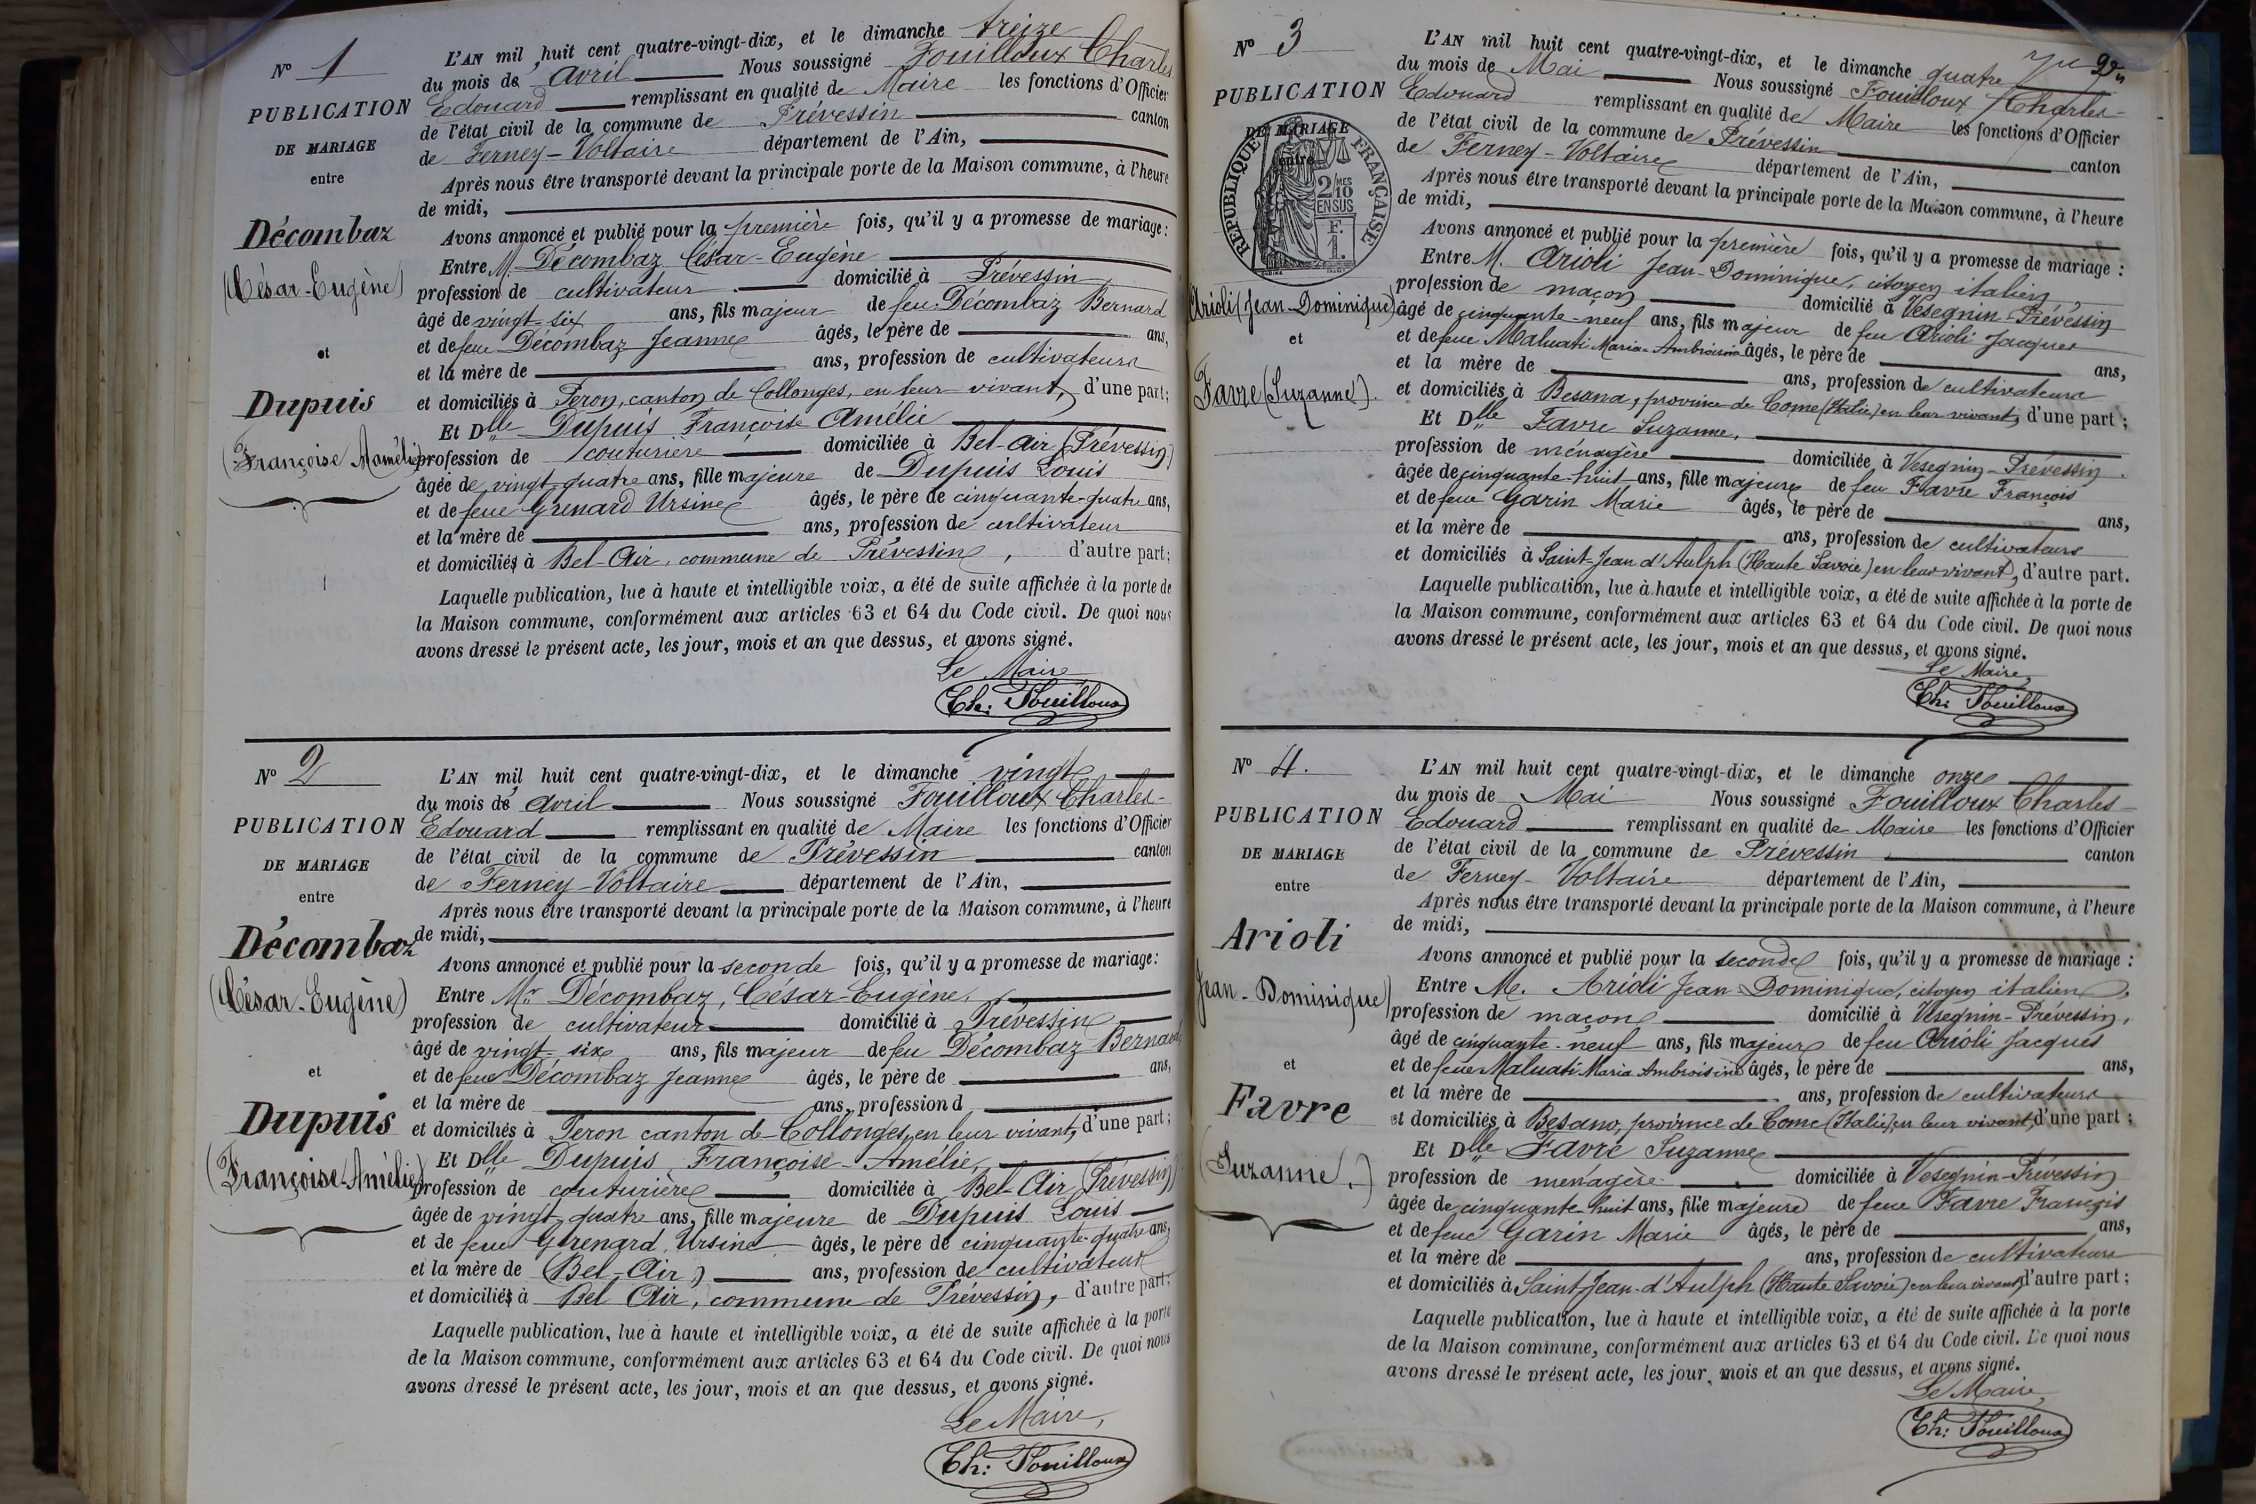 N° 1
PUBLICATION
DE MARIAGE
entre
Décombaz
(César-Eugène)
et
Dupuis
(Françoise Mamélie)
L'AN mil huit cent quatre-vingt-dix, et le dimanche treize
du mois de Avril Nous soussigné Fouilloux Charles
Edouard remplissant en qualité de Maire les fonctions d'Officier
de l'état civil de la commune de Prévessin canton
de Ferney-Voltaire département de l'Ain,
Après nous être transporté devant la principale porte de la Maison commune, à l'heure
de midi,
Avons annoncé et publié pour la première fois, qu'il y a promesse de mariage :
Entre M. Décombaz César-Eugène
profession de cultivateur domicilié à Prévessin
âgé de vingt-six ans, fils majeur de feu Décombaz Bernard
et de feue Décombaz Jeanne âgés, le père de ans,
et la mère de ans, profession de cultivateurs
et domiciliés à Peron, canton de Collonges, en leur vivant, d'une part;
Et Dlle Dupuis Françoise Amélie
profession de couturière domiciliée à Bel-Air (Prévessin)
âgée de vingt quatre ans, fille majeure de Dupuis Louis
et de feue Grenard Ursine âgés, le père de cinquante-quatre ans,
et la mère de ans, profession de cultivateur
et domiciliés à Bel-Air, commune de Prévessin, d'autre part;
Laquelle publication, lue à haute et intelligible voix, a été de suite affichée à la porte de
la Maison commune, conformément aux articles 63 et 64 du Code civil. De quoi nous
avons dressé le présent acte, les jour, mois et an que dessus, et avons signé.
Le Maire
Ch: Fouilloux
N° 2
PUBLICATION
DE MARIAGE
entre
Décombaz
(César-Eugène)
et
Dupuis
(Françoise-Amélie)
L'AN mil huit cent quatre-vingt-dix, et le dimanche vingt
du mois de Avril Nous soussigné Fouilloux Charles-
Edouard remplissant en qualité de Maire les fonctions d'Officier
de l'état civil de la commune de Prévessin canton
de Ferney-Voltaire département de l'Ain,
Après nous être transporté devant la principale porte de la Maison commune, à l'heure
de midi,
Avons annoncé et publié pour la seconde fois, qu'il y a promesse de mariage:
Entre Mr Décombaz, César-Eugène,
profession de cultivateur domicilié à Prévessin
âgé de vingt-six ans, fils majeur de feu Décombaz Bernard
et de feue Décombaz Jeanne âgés, le père de ans,
et la mère de ans, profession d
et domiciliés à Peron canton de Collonges, en leur vivant, d'une part;
Et Dlle Dupuis Françoise-Amélie,
profession de couturière domiciliée à Bel-Air (Prévessin)
âgée de vingt quatre ans, fille majeure de Dupuis Louis
et de feue Grenard Ursine âgés, le père de cinquante-quatre ans,
et la mère de (Bel-Air) ans, profession de cultivateur
et domiciliés à Bel Air, commune de Prévessin, d'autre part;
Laquelle publication, lue à haute et intelligible voix, a été de suite affichée à la porte
de la Maison commune, conformément aux articles 63 et 64 du Code civil. De quoi nous
avons dressé le présent acte, les jour, mois et an que dessus, et avons signé.
Le Maire,
Ch: Fouilloux
N° 3
PUBLICATION
DE MARIAGE
entre
RÉPUBLIQUE FRANÇAISE
2/10 MES
EN SUS
F.
1.
Arioli (Jean-Dominique)
et
Favre (Suzanne).
L'AN mil huit cent quatre-vingt-dix, et le dimanche quatre
du mois de Mai Nous soussigné Fouilloux Charles-
Edouard remplissant en qualité de Maire les fonctions d'Officier
de l'état civil de la commune de Prévessin canton
de Ferney-Voltaire département de l'Ain,
Après nous être transporté devant la principale porte de la Maison commune, à l'heure
de midi,
Avons annoncé et publié pour la première fois, qu'il y a promesse de mariage :
Entre M. Arioli Jean-Dominique, citoyen italien,
profession de maçon domicilié à Vesegnin-Prévessin
âgé de cinquante-neuf ans, fils majeur de feu Arioli Jacques
et de feue Maluati Maria-Ambroisine âgés, le père de ans,
et la mère de ans, profession de cultivateurs
et domiciliés à Besana, province de Come (Italie) en leur vivant, d'une part ;
Et Dlle Favre Suzanne,
profession de ménagère domiciliée à Vesegnin-Prévessin.
âgée de cinquante-huit ans, fille majeure de feu Favre François
et de feue Garin Marie âgés, le père de ans,
et la mère de ans, profession de cultivateurs
et domiciliés à Saint-Jean d'Aulph (Haute Savoie) en leur vivant, d'autre part.
Laquelle publication, lue à haute et intelligible voix, a été de suite affichée à la porte de
la Maison commune, conformément aux articles 63 et 64 du Code civil. De quoi nous
avons dressé le présent acte, les jour, mois et an que dessus, et avons signé.
Le Maire,
Ch: Fouilloux
N° 4.
PUBLICATION
DE MARIAGE
entre
Arioli
Jean-Dominique)
et
Favre
(Suzanne.)
L'AN mil huit cent quatre-vingt-dix, et le dimanche onze
du mois de Mai Nous soussigné Fouilloux Charles-
Edouard remplissant en qualité de Maire les fonctions d'Officier
de l'état civil de la commune de Prévessin canton
de Ferney-Voltaire département de l'Ain,
Après nous être transporté devant la principale porte de la Maison commune, à l'heure
de midi,
Avons annoncé et publié pour la seconde fois, qu'il y a promesse de mariage :
Entre M. Arioli Jean Dominique, citoyen italien,
profession de maçon domicilié à Vesegnin-Prévessin,
âgé de cinquante-neuf ans, fils majeur de feu Arioli Jacques
et de feue Maluati Maria Ambroisine âgés, le père de ans,
et la mère de ans, profession de cultivateurs
et domiciliés à Besano, province de Come (Italie) en leur vivant, d'une part ;
Et Dlle Favre Suzanne
profession de ménagère domiciliée à Vesegnin-Prévessin
âgée de cinquante-huit ans, fille majeure de feue Favre François
et de feue Garin Marie âgés, le père de ans,
et la mère de ans, profession de cultivateurs
et domiciliés à Saint Jean-d'Aulph (Haute Savoie) en leur vivant, d'autre part ;
Laquelle publication, lue à haute et intelligible voix, a été de suite affichée à la porte
de la Maison commune, conformément aux articles 63 et 64 du Code civil. De quoi nous
avons dressé le présent acte, les jour, mois et an que dessus, et avons signé.
Le Maire,
Ch: Fouilloux